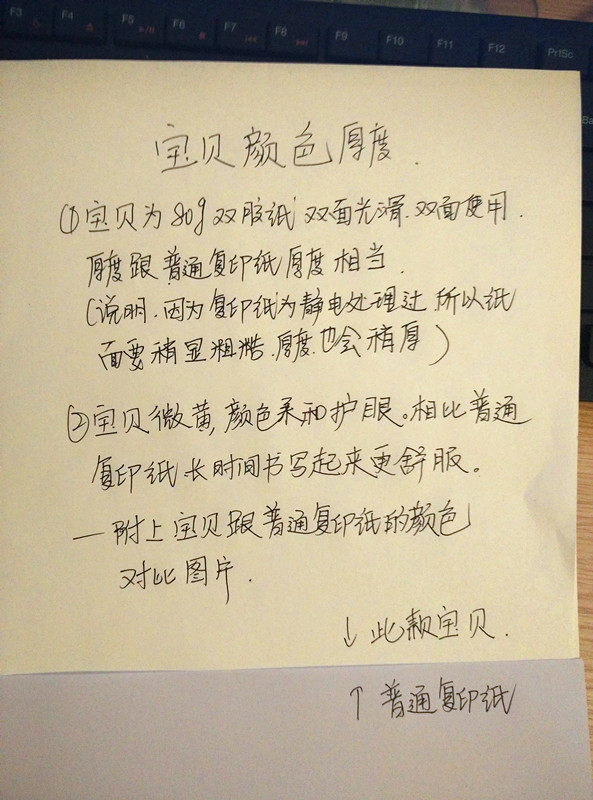 F3 F4 F5 F6 F7 F8 F9 F10 F11 F12 PrtSc
宝贝颜色厚度.
①宝贝为80g双胶纸 双面光滑.双面使用.
厚度跟普通复印纸厚度相当.
(说明.因为复印纸为静电处理过 所以纸
面要稍显粗糙.厚度也会稍厚)
②宝贝微黄,颜色柔和护眼。相比普通
复印纸长时间书写起来更舒服。
—附上宝贝跟普通复印纸的颜色
对比图片.
↓此款宝贝.
↑普通复印纸